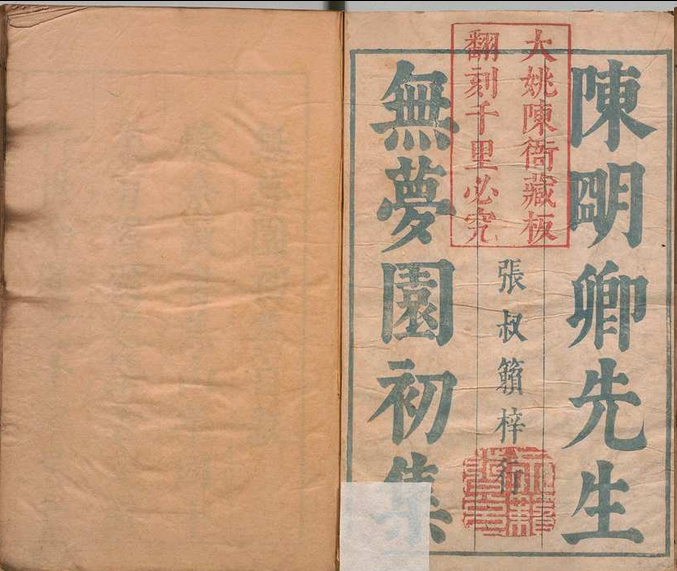 陳明卿先生
大姚陳衙藏板
翻刻千里必究
張叔籟梓行
無夢園初集